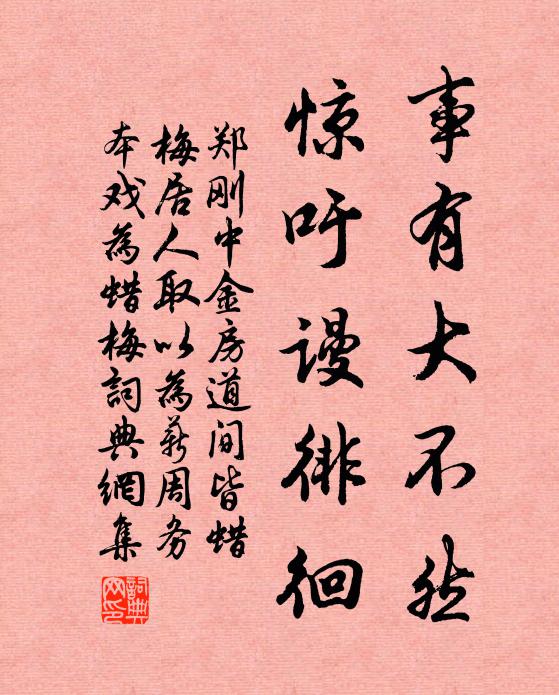 事有大不然
惊吁谩徘徊
郑刚中金房道间皆蜡
梅居人取以為薪周务
本戏為蜡梅詞典網集
詞典網印